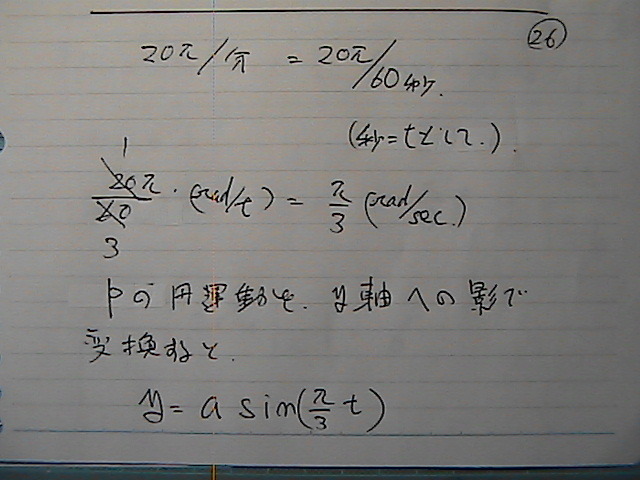 ㉖
20π/分 = 20π/60秒.
(秒=tとして.).
1
20π/60・(rad/t) = π/3 (rad/sec.)
3
Pの円運動を、y軸への影で
変換すると.
y = a sin(π/3 t)